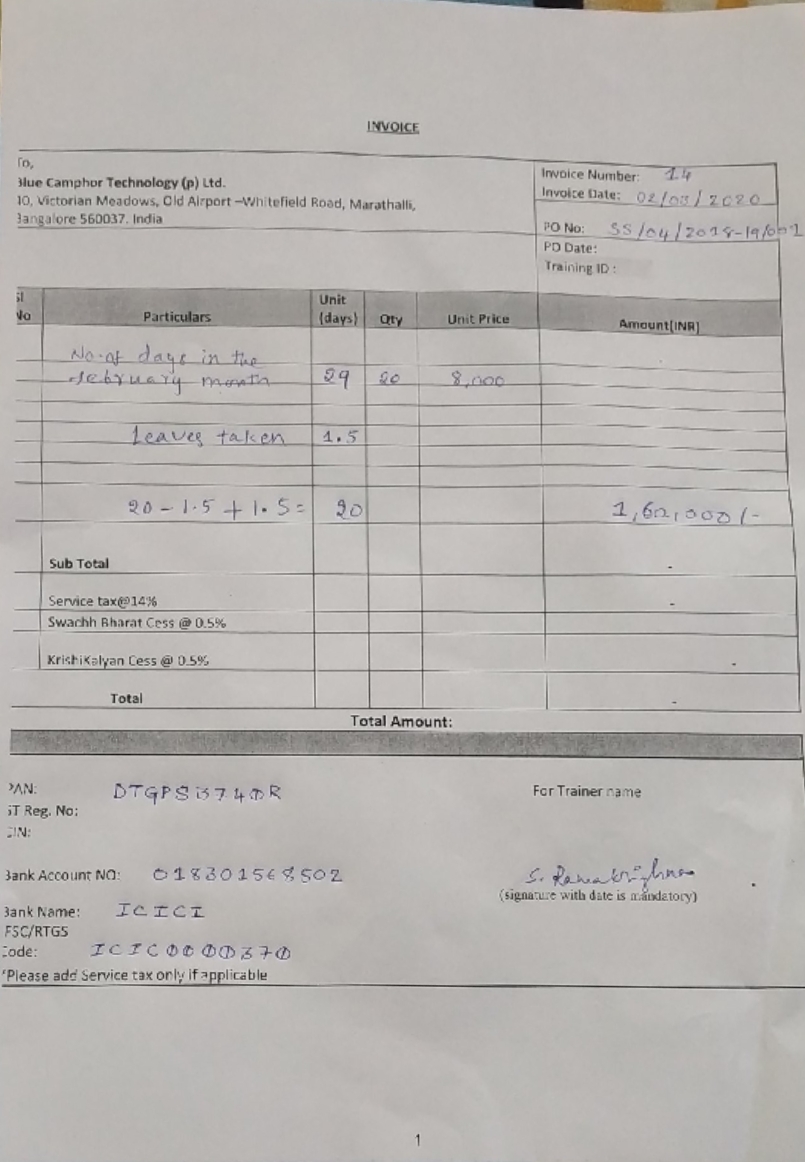 INVOICE
To,
Blue Camphor Technology (p) Ltd.
10, Victorian Meadows, Old Airport –Whitefield Road, Marathalli,
Bangalore 560037. India
Invoice Number: 14
Invoice Date: 02/03/2020
PO No: SS/04/2018-19/001
PO Date:
Training ID :
Sl No Particulars Unit (days) Qty Unit Price Amount(INR)
No.of days in the
february month 29 20 8,000
Leaves taken 1.5
20 - 1.5 + 1.5 = 20 1,60,000/-
Sub Total -
Service tax@14% -
Swachh Bharat Cess @ 0.5%
KrishiKalyan Cess @ 0.5% -
Total -
Total Amount:
PAN:
For Trainer name
ST Reg. No:
Bank Account NO: 018301568502
S. Ramakrishna
(signature with date is mandatory)
Bank Name: ICICI
FSC/RTGS
Code: ICIC0000370
*Please add Service tax only if applicable
1